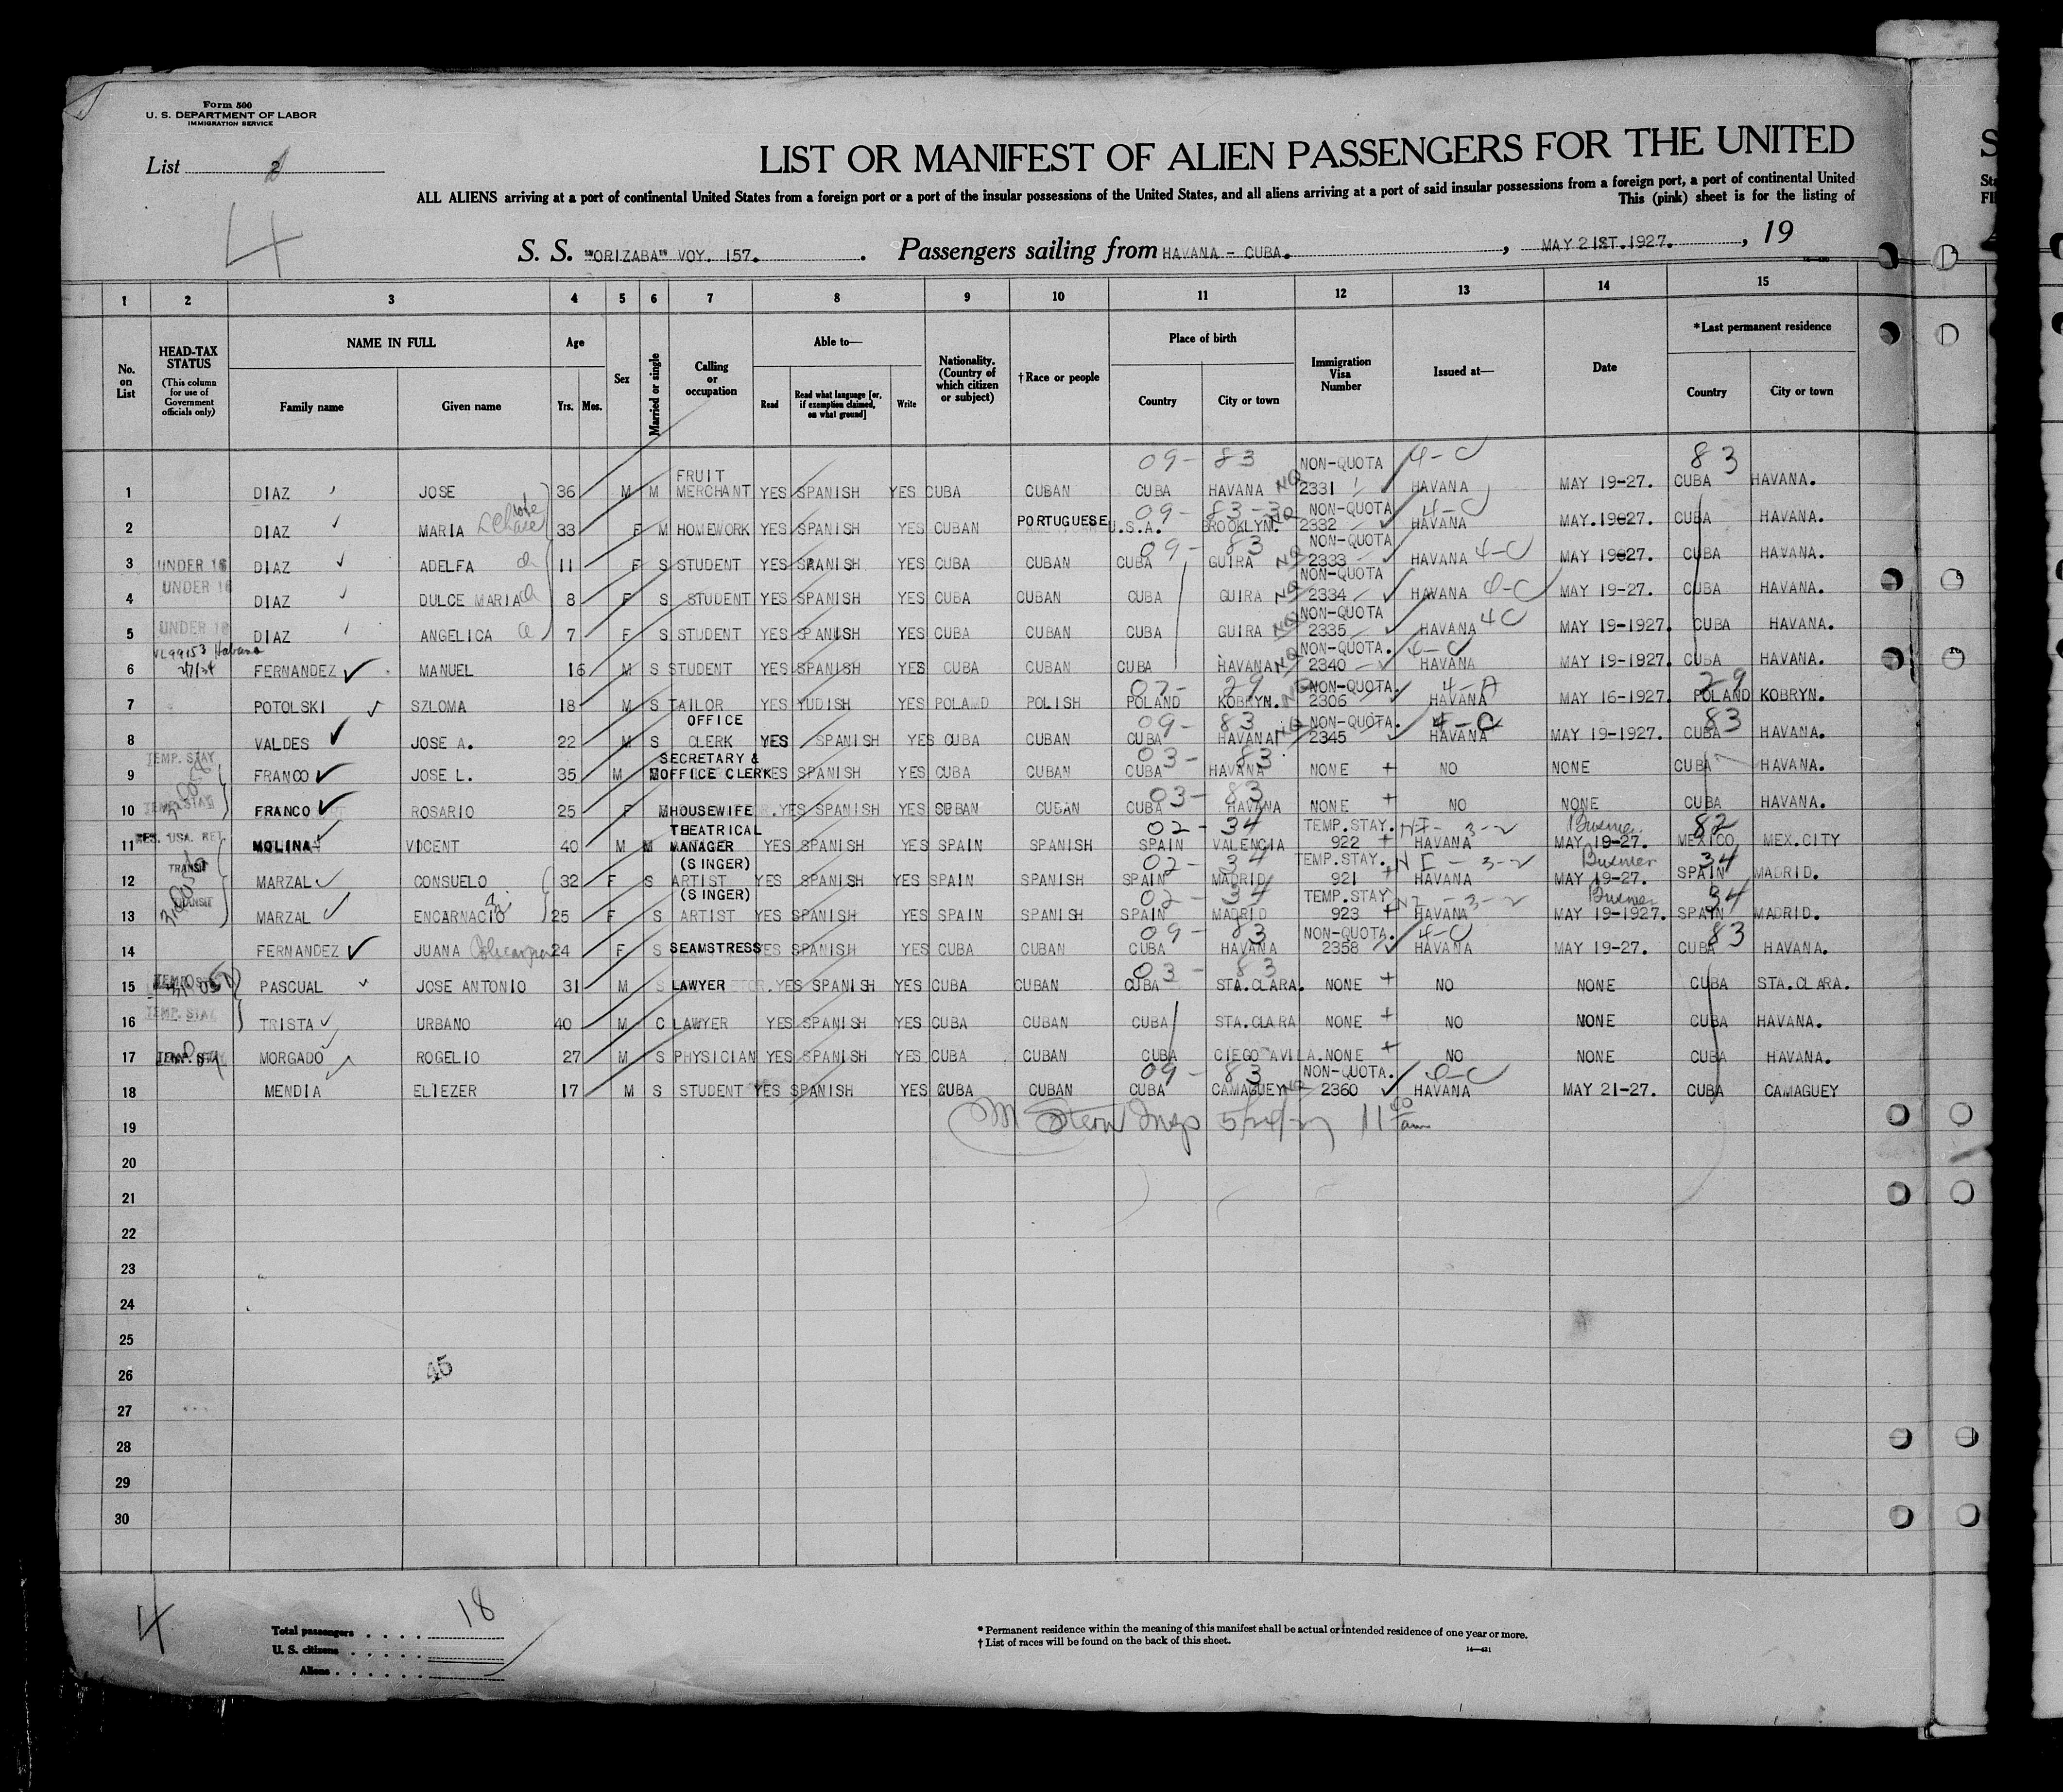 Form 500
U. S. DEPARTMENT OF LABOR
IMMIGRATION SERVICE
List 2
4
LIST OR MANIFEST OF ALIEN PASSENGERS FOR THE UNITED
ALL ALIENS arriving at a port of continental United States from a foreign port or a port of the insular possessions of the United States, and all aliens arriving at a port of said insular possessions from a foreign port, a port of continental United
This (pink) sheet is for the listing of
S. S. "ORIZABA" VOY. 157. Passengers sailing from HAVANA - CUBA. , MAY 21ST.1927. , 19
1 2 3 4 5 6 7 8 9 10 11 12 13 14 15
No. on List HEAD-TAX STATUS (This column for use of Government officials only) NAME IN FULL Family name Given name Age Yrs. Mos. Sex Married or single Calling or occupation Able to— Read Read what language [or, if exemption claimed, on what ground] Write Nationality. (Country of which citizen or subject) †Race or people Place of birth Country City or town Immigration Visa Number Issued at— Date *Last permanent residence Country City or town
09- 83 NON-QUOTA 4-C 83
1 DIAZ JOSE 36 M M FRUIT MERCHANT YES SPANISH YES CUBA CUBAN CUBA HAVANA NQ 2331 HAVANA MAY 19-27. CUBA HAVANA.
09- 83-3 NON-QUOTA 4-C
2 DIAZ MARIA 33 F M HOMEWORK YES SPANISH YES CUBAN PORTUGUESE U.S.A. BROOKLYN. NQ 2332 HAVANA MAY.19627. CUBA HAVANA.
09- 83 NON-QUOTA
3 UNDER 16 DIAZ ADELFA 11 F S STUDENT YES SPANISH YES CUBA CUBAN CUBA GUIRA NQ 2333 HAVANA 4-C MAY 19627. CUBA HAVANA.
NON-QUOTA
4 UNDER 16 DIAZ DULCE MARIA 8 F S STUDENT YES SPANISH YES CUBA CUBAN CUBA GUIRA NQ 2334 HAVANA 4-C MAY 19-27. CUBA HAVANA.
NON-QUOTA
5 UNDER 16 DIAZ ANGELICA 7 F S STUDENT YES SPANISH YES CUBA CUBAN CUBA GUIRA NQ 2335 HAVANA 4C MAY 19-1927. CUBA HAVANA.
VL99153 Habana NON-QUOTA. 4-C
6 FERNANDEZ MANUEL 16 M S STUDENT YES SPANISH YES CUBA CUBAN CUBA HAVANA NQ 2340 HAVANA MAY 19-1927. CUBA HAVANA.
07- 29 NON-QUOTA. 4-A 29
7 POTOLSKI SZLOMA 18 M S TAILOR YES YUDISH YES POLAND POLISH POLAND KOBRYN. NQ 2306 HAVANA MAY 16-1927. POLAND KOBRYN.
09- 83 NON-QUOTA. 4-C 83
8 VALDES JOSE A. 22 M S OFFICE CLERK YES SPANISH YES CUBA CUBAN CUBA HAVANA NQ 2345 HAVANA MAY 19-1927. CUBA HAVANA.
03- 83
9 TEMP. STAY FRANCO JOSE L. 35 M M SECRETARY & OFFICE CLERK YES SPANISH YES CUBA CUBAN CUBA HAVANA NONE + NO NONE CUBA HAVANA.
03- 83
10 TEMP. STAY FRANCO ROSARIO 25 F M HOUSEWIFE YES SPANISH YES CUBAN CUBAN CUBA HAVANA NONE + NO NONE CUBA HAVANA.
02- 34 TEMP.STAY. NI- 3-2 82
11 RES. USA. RET. MOLINA VICENT 40 M M THEATRICAL MANAGER YES SPANISH YES SPAIN SPANISH SPAIN VALENCIA 922 + HAVANA MAY 19-27. MEXICO, MEX.CITY
02- 34 TEMP.STAY. NI- 3-2 34
12 TRANSIT MARZAL CONSUELO 32 F S (SINGER) ARTIST YES SPANISH YES SPAIN SPANISH SPAIN MADRID 921 + HAVANA MAY 19-27. SPAIN MADRID.
02- 34 TEMP.STAY NI- 3-2 34
13 TRANSIT MARZAL ENCARNACIO 25 F S (SINGER) ARTIST YES SPANISH YES SPAIN SPANISH SPAIN MADRID 923 + HAVANA MAY 19-1927. SPAIN MADRID.
09- 83 NON-QUOTA. 4-C 83
14 FERNANDEZ JUANA 24 F S SEAMSTRESS YES SPANISH YES CUBA CUBAN CUBA HAVANA 2358 HAVANA MAY 19-27. CUBA HAVANA.
03- 83
15 PASCUAL JOSE ANTONIO 31 M S LAWYER YES SPANISH YES CUBA CUBAN CUBA STA.CLARA. NONE + NO NONE CUBA STA.CLARA.
16 TEMP. STAY TRISTA URBANO 40 M C LAWYER YES SPANISH YES CUBA CUBAN CUBA STA.CLARA NONE + NO NONE CUBA HAVANA.
17 MORGADO ROGELIO 27 M S PHYSICIAN YES SPANISH YES CUBA CUBAN CUBA CIEGO AVILA. NONE + NO NONE CUBA HAVANA.
09- 83 NON-QUOTA. 4-C
18 MENDIA ELIEZER 17 M S STUDENT YES SPANISH YES CUBA CUBAN CUBA CAMAGUEY NQ 2360 HAVANA MAY 21-27. CUBA CAMAGUEY
19 M Stern Insp 5/24/27 11 am
20
21
22
23
24
25
26 45
27
28
29
30
4
Total passengers 18
U. S. citizens
Aliens
* Permanent residence within the meaning of this manifest shall be actual or intended residence of one year or more.
† List of races will be found on the back of this sheet.